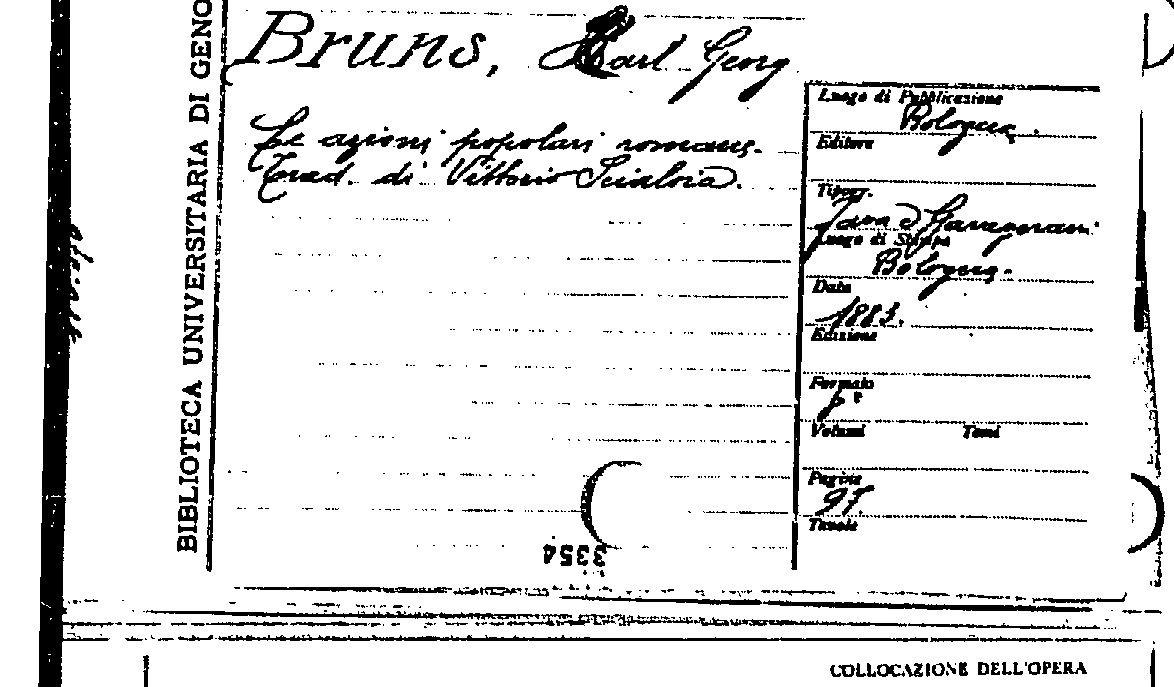 BIBLIOTECA UNIVERSITARIA DI GENO
Bruns, Karl Georg
Le azioni popolari romane.
Trad. di Vittorio Scialoia.
Luogo di Pubblicazione
Bologna.
Editore
Tipogr.
Luogo di Stampa
Bologna.
Data
1883.
Edizione
Formato
Volumi Tomi
Pagine
97.
Tavole
3354
COLLOCAZIONE DELL'OPERA